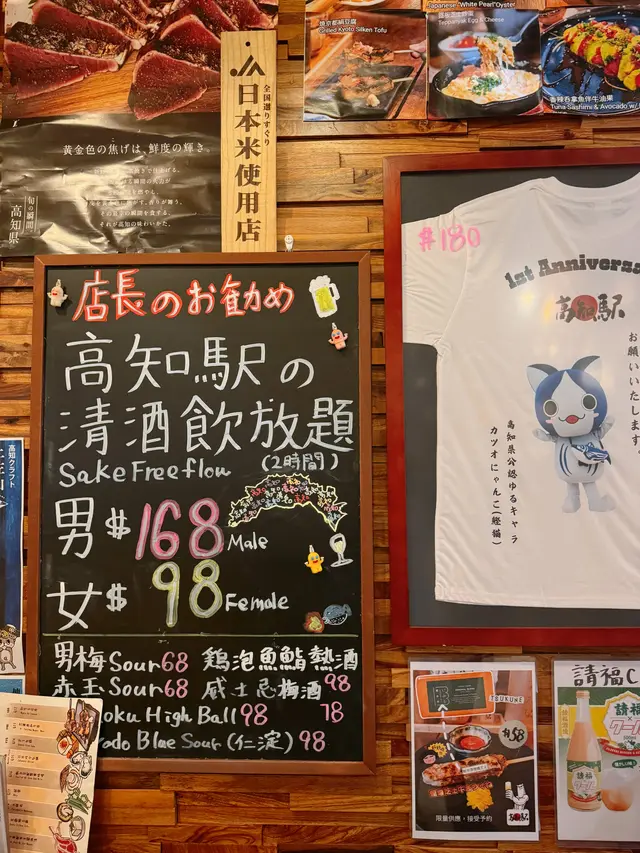 焼京都絹豆腐
Grilled Kyoto Silken Tofu
Japanese "White Pearl" Oyster
Teppanyaki Egg & Cheese
香辣吞拿魚伴牛油果
Tuna Sashimi & Avocado w/
黄金色の焦げは、鮮度の輝き。
それが高知の味わいかた。
旬の瞬間
高知県
JA
全国選りすぐり
日本米使用店
店長のお勧め
高知駅の
清酒飲放題
Sake Free flow (2時間)
男 $168 Male
女 $98 Female
男梅Sour 68
赤玉Sour 68
oku High Ball 98
odo Blue Sour (仁淀) 98
鶏泡魚鮨熱酒
98
威士忌梅酒
78
$180
1st Anniversa
高知駅
お願いいたします。
高知県公認ゆるキャラ
カツオにゃんこ(鰹猫)
高知クラフト
TSUKUNE
$58
限量供應・接受予約
請福C
請福